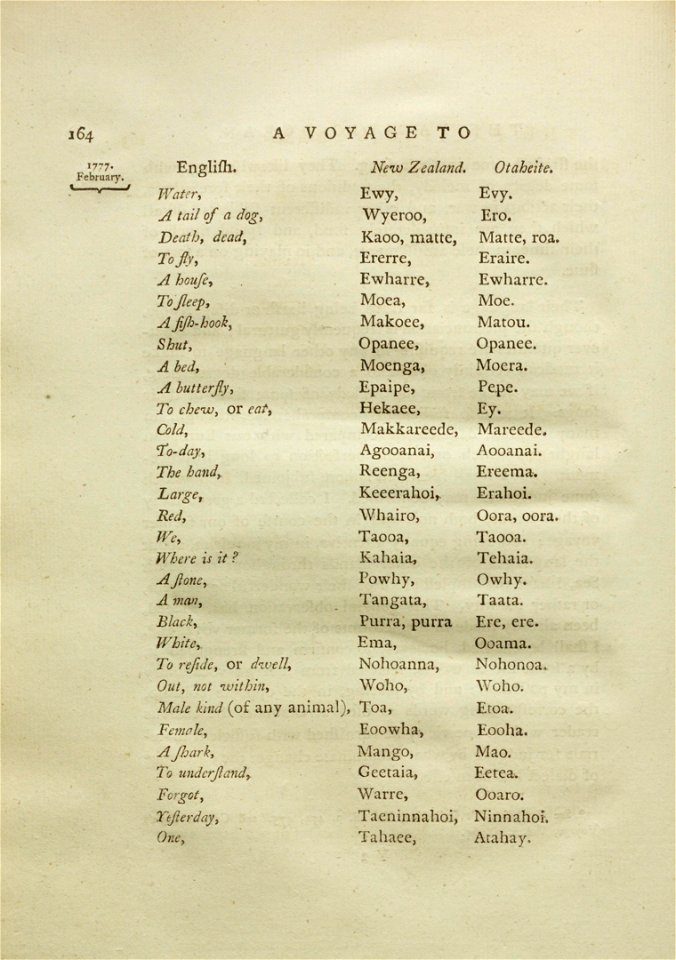 164 A VOYAGE TO
1777.
February.
Engliſh. New Zealand. Otaheite.
Water, Ewy, Evy.
A tail of a dog, Wyeroo, Ero.
Death, dead, Kaoo, matte, Matte, roa.
To fly, Ererre, Eraire.
A houſe, Ewharre, Ewharre.
To ſleep, Moea, Moe.
A fiſh-hook, Makoee, Matou.
Shut, Opanee, Opanee.
A bed, Moenga, Moera.
A butterfly, Epaipe, Pepe.
To chew, or eat, Hekaee, Ey.
Cold, Makkareede, Mareede.
To-day, Agooanai, Aooanai.
The hand, Reenga, Ereema.
Large, Keeerahoi, Erahoi.
Red, Whairo, Oora, oora.
We, Taooa, Taooa.
Where is it? Kahaia, Tehaia.
A ſtone, Powhy, Owhy.
A man, Tangata, Taata.
Black, Purra, purra Ere, ere.
White, Ema, Ooama.
To reſide, or dwell, Nohoanna, Nohonoa.
Out, not within, Woho, Woho.
Male kind (of any animal), Toa, Etoa.
Female, Eoowha, Eooha.
A ſhark, Mango, Mao.
To underſtand, Geetaia, Eetea.
Forgot, Warre, Ooaro.
Yeſterday, Taeninnahoi, Ninnahoi.
One, Tahaee, Atahay.